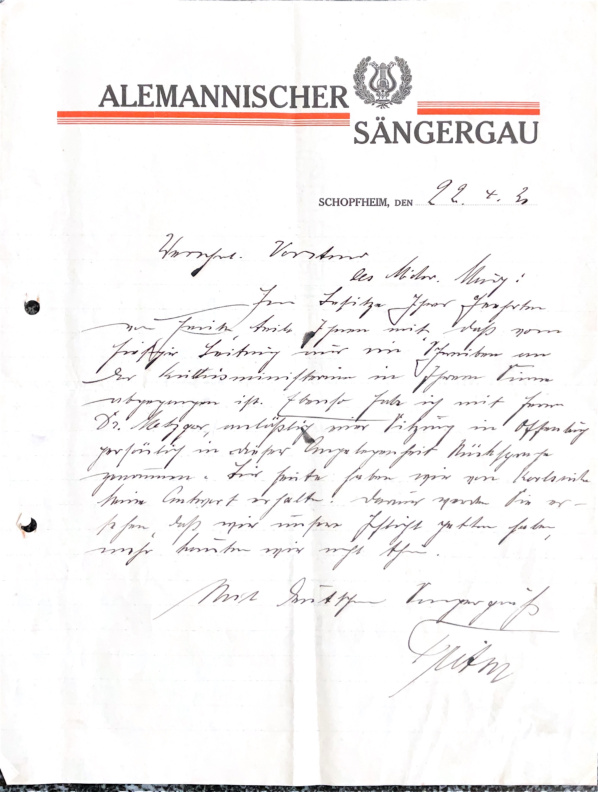 ALEMANNISCHER
SÄNGERGAU
SCHOPFHEIM, DEN 22. 4.
Verehrl. Vorstand
des
Im Besitze Ihres Geehrten
von heute teile Ihnen mit, daß vom
Leitung ein Schreiben an
das Kultusministerium in Ihrem Sinne
abgegangen ist. Ebenso habe ich mit Herrn
Dr. Metzger, anläßlich einer Sitzung in Offenburg
persönlich in dieser Angelegenheit Rücksprache
genommen. Bis heute haben wir von Karlsruhe
keine Antwort erhalten. Daraus werden Sie er-
sehen, daß wir unsere Pflicht getan haben,
mehr konnten wir nicht thun.
Mit deutschem Sängergruß